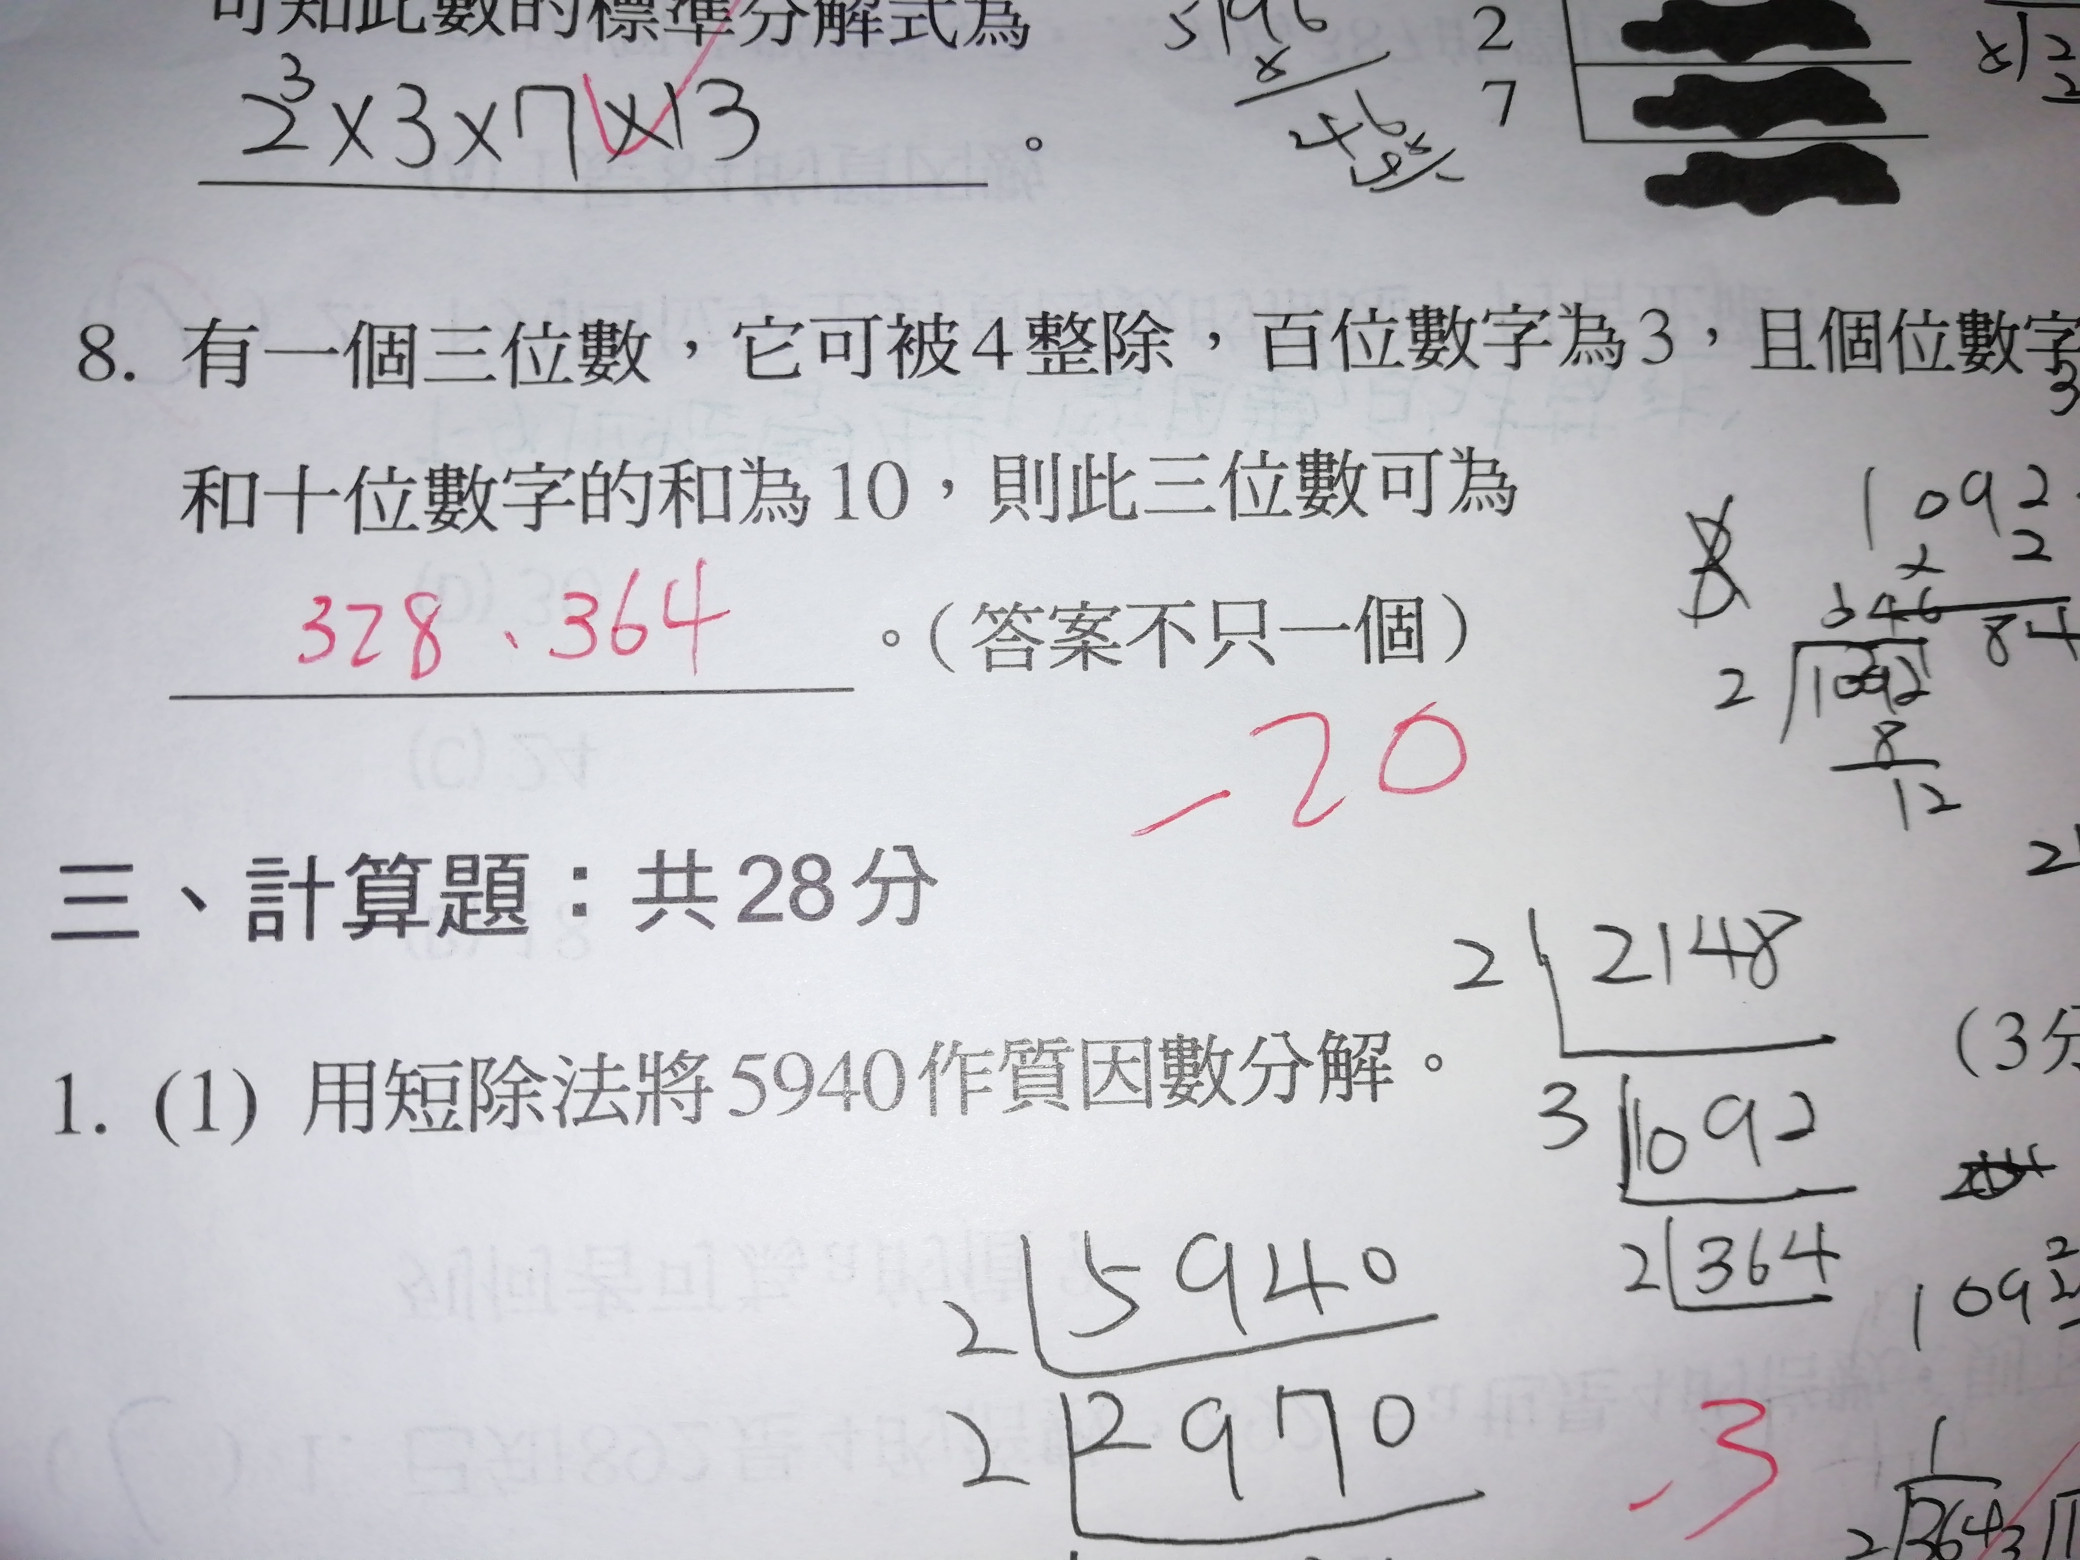 可知此數的標準分解式為
2³×3×7×13 。
2
7
8. 有一個三位數，它可被4整除，百位數字為3，且個位數字
和十位數字的和為10，則此三位數可為
328、364 。(答案不只一個)
-20
1092
2
84
2 1092
8
12
三、計算題：共28分
2 2148
3 1092
2 364
1. (1) 用短除法將5940作質因數分解。 (3分
2 5940
2 2970
1092
-3
1
2 364